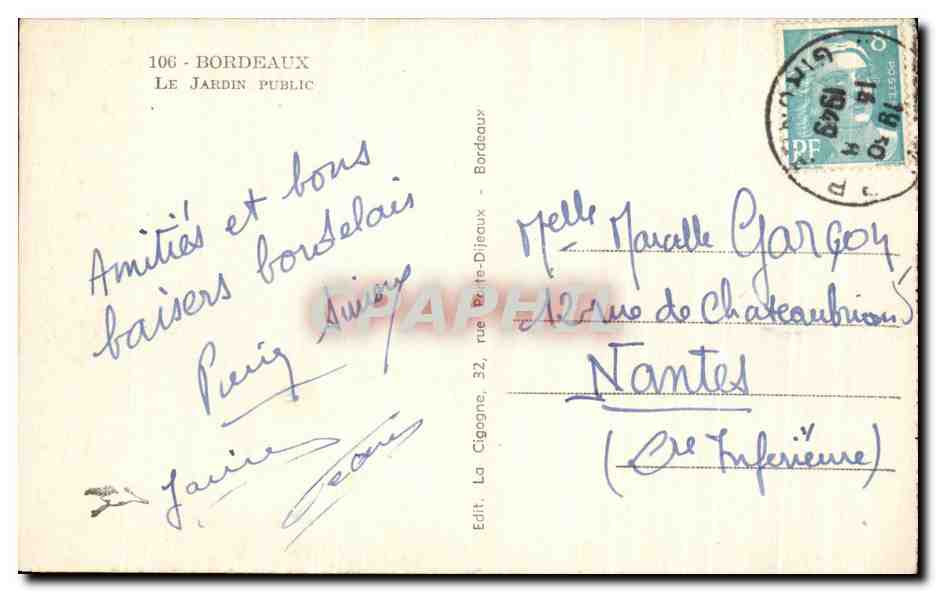 106 - BORDEAUX
LE JARDIN PUBLIC
Amitiés et bons
baisers bordelais
Edit. La Cigogne, 32, rue Porte-Dijeaux - Bordeaux
8F
POSTES
RF
GIRONDE
19 30
1949
Melle Marcelle Garçon
12 rue de Chateaubriand
Nantes
(Loire Inférieure)
CPAPHIL